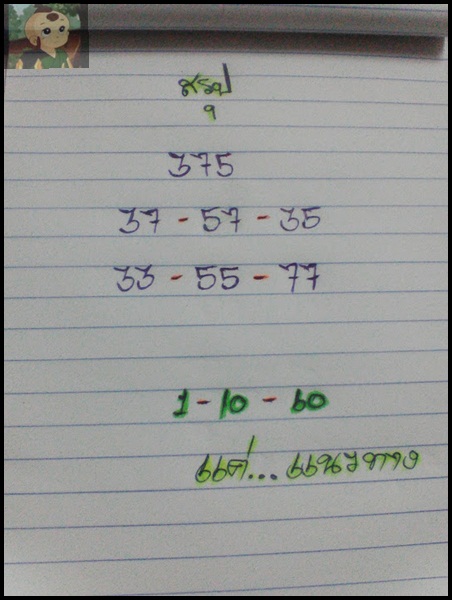 สรุป
375
37 - 57 - 35
33 - 55 - 77
1 - 10 - 60
แค่... แนวทาง